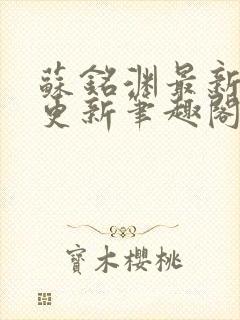 蘇銘淵最新
更新筆趣閣
寶木櫻桃